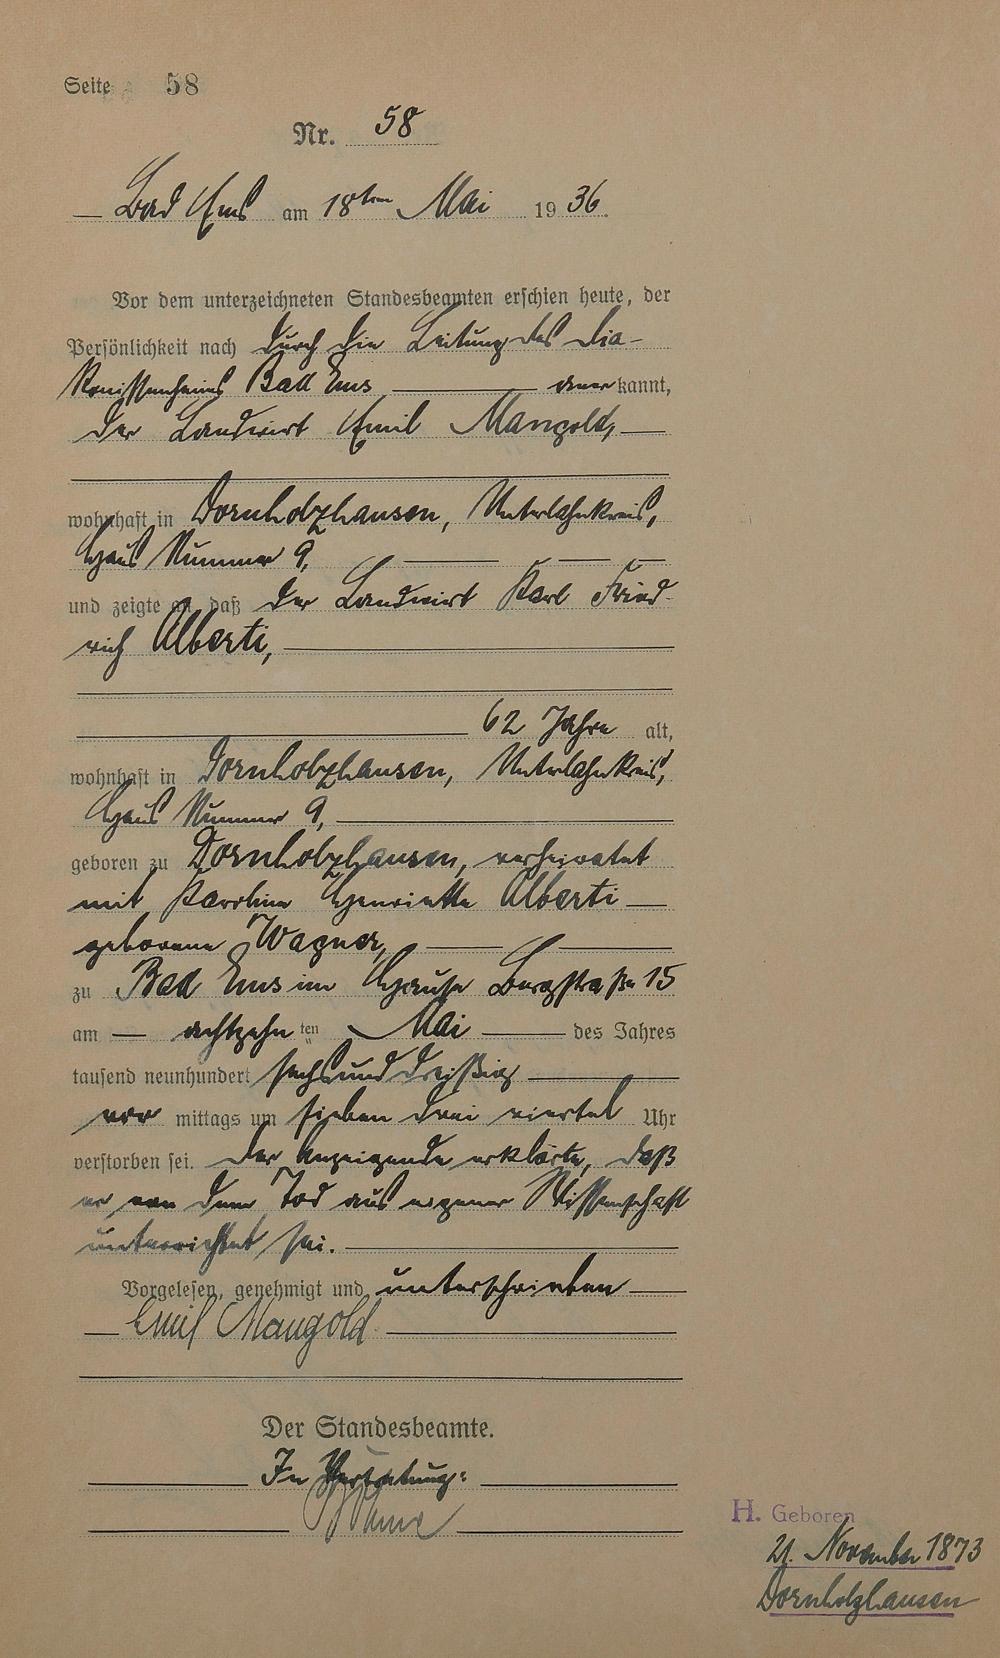 Seite 58
Nr. 58
Bad Ems am 18ten Mai 1936.
Vor dem unterzeichneten Standesbeamten erschien heute, der
Persönlichkeit nach durch die Leitung des Dia-
konissenheims Bad Ems anerkannt,
der Landwirt Emil Mangold,
wohnhaft in Dornholzhausen, Unterlahnkreis,
Haus Nummer 9,
und zeigte an, daß der Landwirt Karl Fried-
rich Alberti,
62 Jahre alt,
wohnhaft in Dornholzhausen, Unterlahnkreis,
Haus Nummer 9,
geboren zu Dornholzhausen, verheiratet
mit Karoline Henriette Alberti
geborene Wagner,
zu Bad Ems im Hause Burgstraße 15
am achtzehnten Mai des Jahres
tausend neunhundert sechsunddreißig
vormittags um sieben drei viertel Uhr
verstorben sei. Der Anzeigende erklärte, daß
er von dem Tod aus eigener Wissenschaft
unterrichtet sei.
Vorgelesen, genehmigt und unterschrieben
Emil Mangold
Der Standesbeamte.
In Vertretung:
H. Geboren
21. November 1873
Dornholzhausen